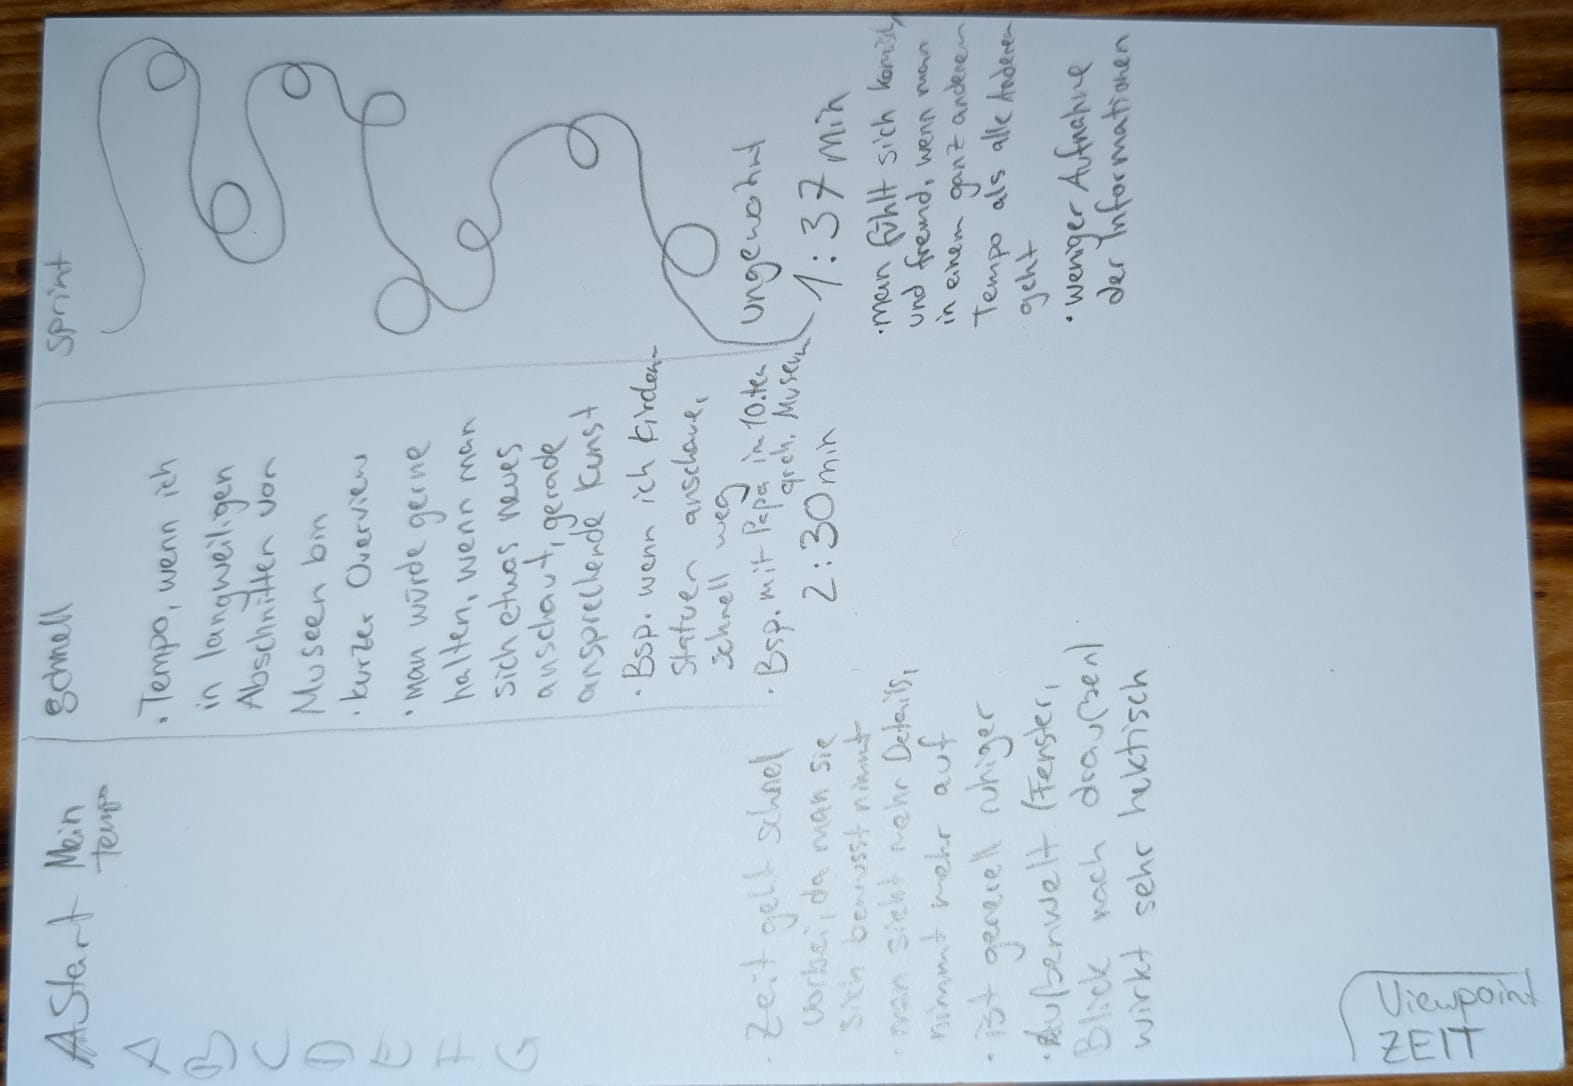 Start Mein
Tempo
A
B
C
D
E
F
G
· Zeit geht schnell
vorbei, da man sie
sich bewusst nimmt
· man sieht mehr Details,
nimmt mehr auf
· ist generell ruhiger
· Außenwelt (Fenster,
Blick nach draußen)
wirkt sehr hektisch
Schnell
· Tempo, wenn ich
in langweiligen
Abschnitten von
Museen bin
· kurzer Overview
· man würde gerne
halten, wenn man
sich etwas neues
anschaut, gerade
ansprechende Kunst
· Bsp. wenn ich Kirchen-
statuen anschaue,
schnell weg
· Bsp. mit Papa in 10.ten
arch. Museum
2:30 min
Sprint
ungewohnt
1:37 min
· man fühlt sich komisch
und fremd, wenn man
in einem ganz anderem
Tempo als alle Anderen
geht
· weniger Aufnahme
der Informationen
Viewpoint
ZEIT